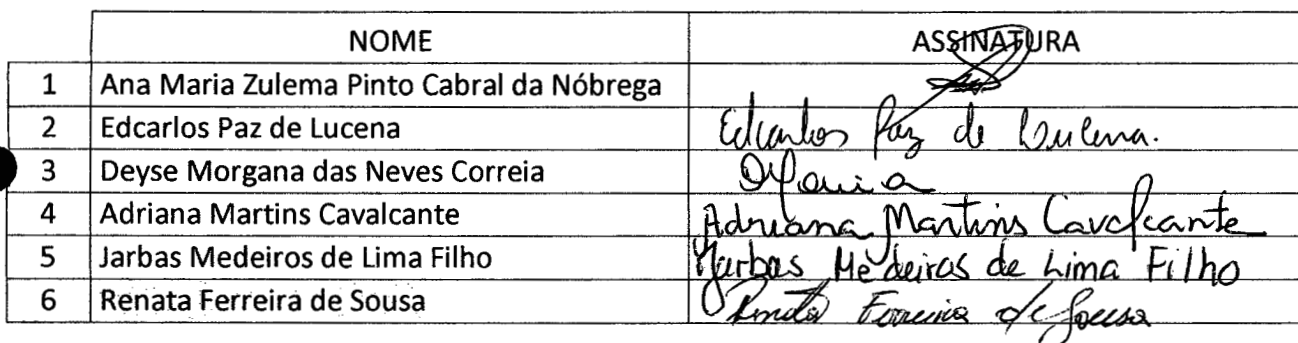 NOME ASSINATURA
1 Ana Maria Zulema Pinto Cabral da Nóbrega
2 Edcarlos Paz de Lucena Edcarlos Paz de Lucena.
3 Deyse Morgana das Neves Correia
4 Adriana Martins Cavalcante Adriana Martins Cavalcante
5 Jarbas Medeiros de Lima Filho Jarbas Medeiros de Lima Filho
6 Renata Ferreira de Sousa Renata Ferreira de Sousa